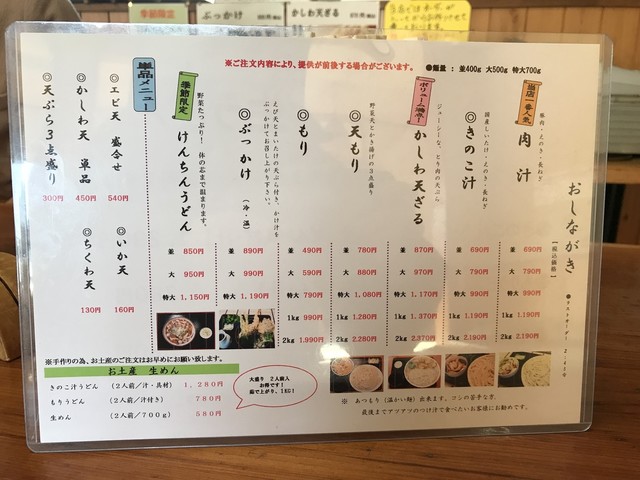 季節限定
ぶっかけ
かしわ天ざる
※ご注文内容により、提供が前後する場合がございます。
●麺量 : 並400g 大500g 特大700g
おしながき
【税込価格】
当店一番人気
肉汁
豚肉・えのき・長ねぎ
並 690円
大 790円
特大 990円
1kg 1,190円
2kg 2,190円
きのこ汁
国産しいたけ・えのき・長ねぎ
並 690円
大 790円
特大 990円
1kg 1,190円
2kg 2,190円
ボリューム満点!
かしわ天ざる
ジューシーな、とり肉の天ぷら
並 870円
大 970円
特大 1,170円
1kg 1,370円
2kg 2,370円
◎天もり
野菜天とかき揚げの3点盛り
並 780円
大 880円
特大 1,080円
1kg 1,280円
2kg 2,280円
◎もり
並 490円
大 590円
特大 790円
1kg 990円
2kg 1,990円
◎ぶっかけ (冷・温)
えび天とまいたけの天ぷら付き、かけ汁を
ぶっかけてお召し上がり下さい。
並 890円
大 990円
特大 1,190円
季節限定
けんちんうどん
野菜たっぷり! 体の芯まで温まります。
並 850円
大 950円
特大 1,150円
単品メニュー
◎エビ天 盛合せ 540円
◎いか天 160円
◎かしわ天 単品 450円
◎ちくわ天 130円
◎天ぷら3点盛り 300円
※手作りの為、お土産のご注文はお早めにお願い致します。
お土産 生めん
きのこ汁うどん (2人前/汁・具材) 1,280円
もりうどん (2人前/汁付き) 780円
生めん (2人前/700g) 580円
大盛り 2人前入
お得です!
茹で上がり、1KG!
※ あつもり(温かい麺)出来ます。コシの苦手な方、
最後までアツアツのつけ汁で食べたいお客様にお勧めです。